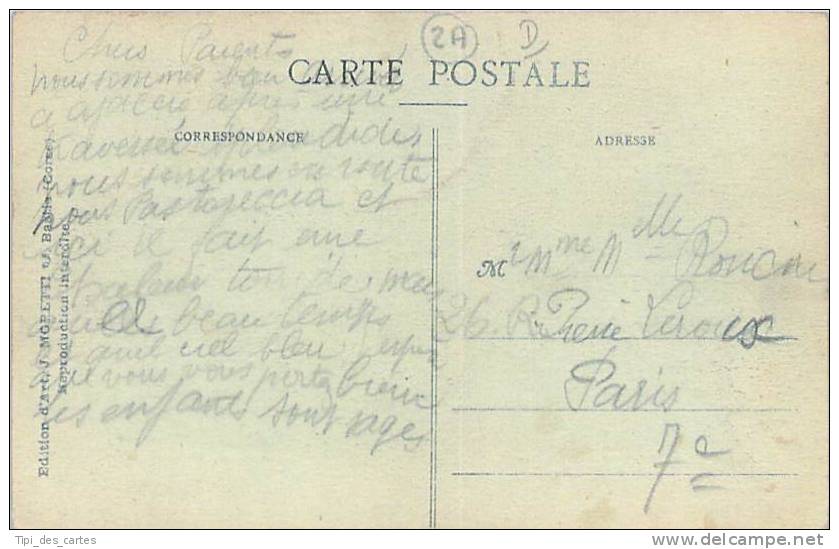 2A
D
Chers Parents
nous sommes bien
a ajaccio après une
traversée splendides
nous sommes en route
pour Pastoreccia et
ici il fait une
chaleur torride mais
beau temps
quel ciel bleu
que vous vous portez bien
les enfants sont sages
CARTE POSTALE
CORRESPONDANCE
ADRESSE
Mr Mme Mlle
26 R Pierre Leroux
Paris
7e
Edition d'Art, J. MORETTI Bastia (Corse)
Reproduction interdite
Tipi_des_cartes
http://www.delcampe.net